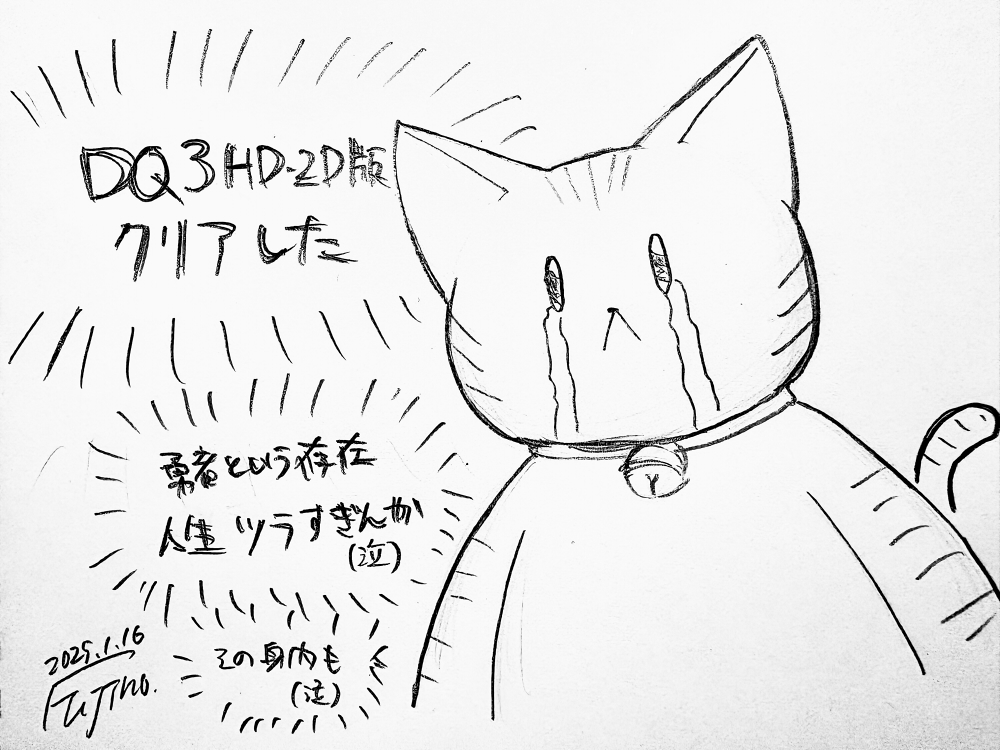 DQ3HD-2D版
クリアした
勇者という存在
人生ツラすぎんか
(泣)
その身内も
(泣)
2025.1.16
FUJINO.